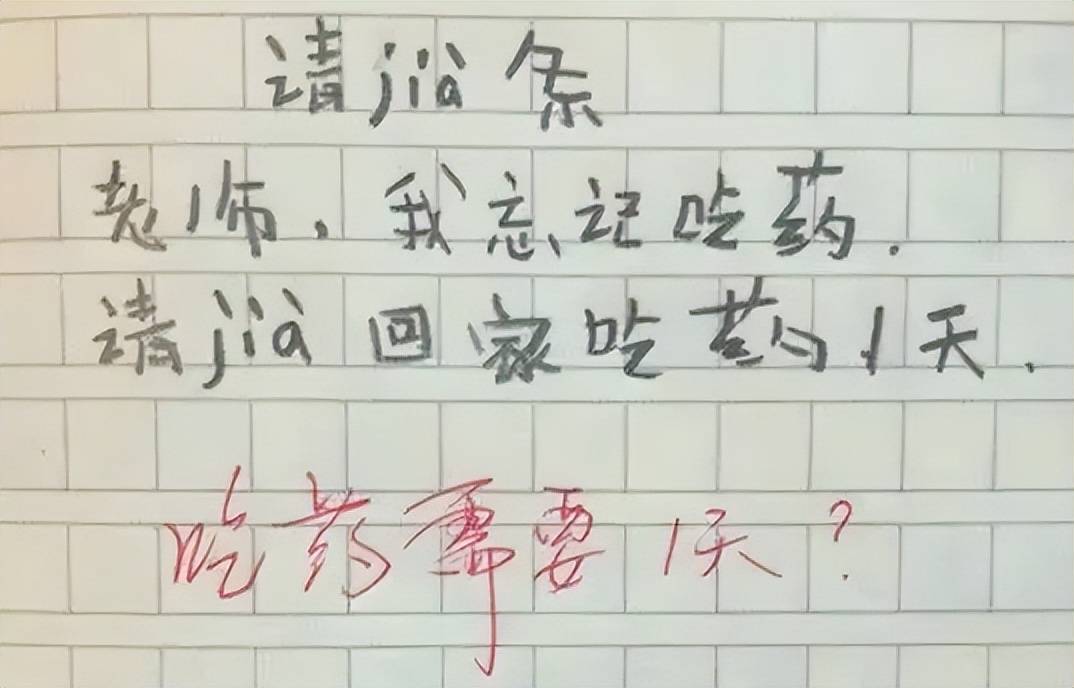 请jià条
老师，我忘记吃药.
请jià回家吃药1天.
吃药需要1天？